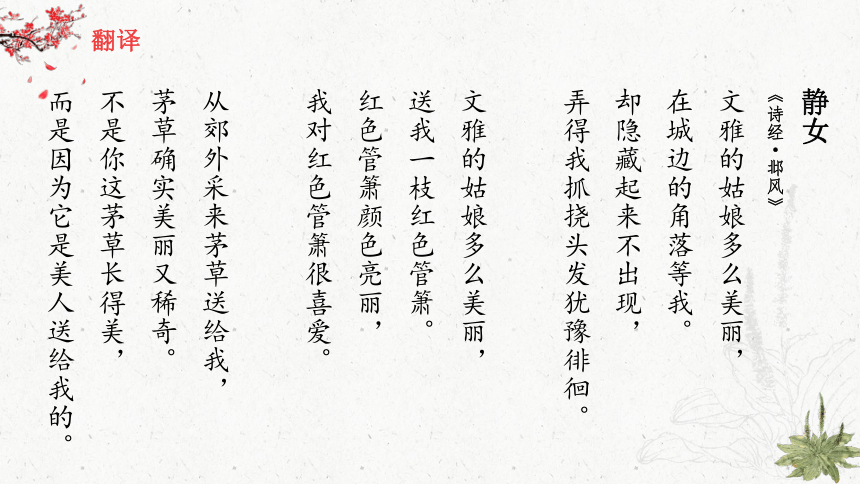 翻译
静女
《诗经·邶风》
文雅的姑娘多么美丽，
在城边的角落等我。
却隐藏起来不出现，
弄得我抓挠头发犹豫徘徊。
文雅的姑娘多么美丽，
送我一枝红色管箫。
红色管箫颜色亮丽，
我对红色管箫很喜爱。
从郊外采来茅草送给我，
茅草确实美丽又稀奇。
不是你这茅草长得美，
而是因为它是美人送给我的。